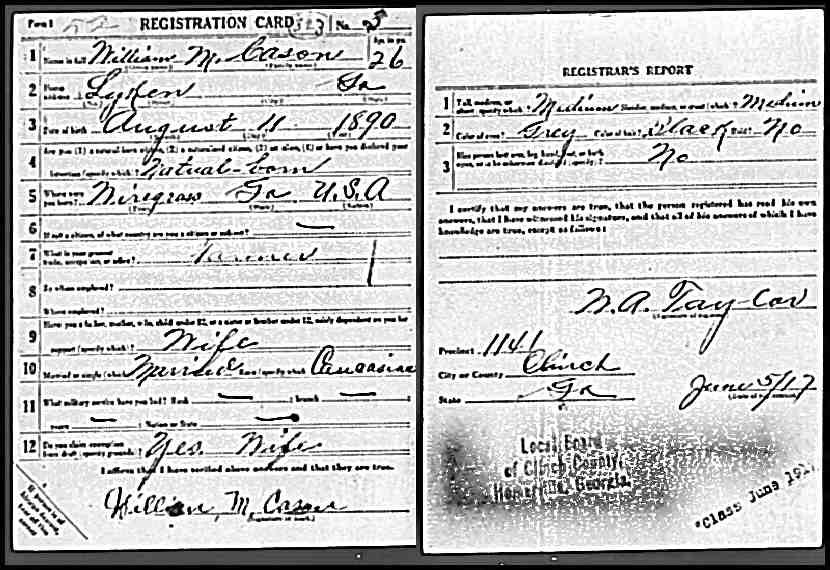 Form 1 523 No. 5
REGISTRATION CARD
1 Name in full William M. Cason Age, in yrs. 26
(Given name) (Family name)
2 Home address Ga
(No.) (Street) (City) (State)
3 Date of birth August 11 1890
4 Are you (1) a natural-born citizen, (2) a naturalized citizen, (3) an alien, (4) or have you declared your
intention (specify which)? Natual-born
5 Where were you born? Wiregrass Ga U.S.A
(Town) (State) (Nation)
6 If not a citizen, of what country are you a citizen or subject? —
7 What is your present trade, occupation, or office? Farmer
8 By whom employed?
Where employed?
9 Have you a father, mother, wife, child under 12, or a sister or brother under 12, solely dependent on you for
support (specify which)? Wife
10 Married or single (which)? Married Race (specify which)? Caucasian
11 What military service have you had? Rank — ; branch — ;
years — ; Nation or State —
12 Do you claim exemption from draft (specify grounds)? Yes. Wife
I affirm that I have verified above answers and that they are true.
William M. Cason
(Signature or mark)
REGISTRAR'S REPORT
1 Tall, medium, or short (specify which)? Medium Slender, medium, or stout (which)? Medium
2 Color of eyes? Grey Color of hair? Black Bald? No
3 Has person lost arm, leg, hand, foot, or both
eyes, or is he otherwise disabled (specify)? No
I certify that my answers are true, that the person registered has read his own
answers, that I have witnessed his signature, and that all of his answers of which I have
knowledge are true, except as follows:
Precinct 1141
City or County Clinch
State Ga June 5/17
Local Board
of Clinch County,
Homerville, Georgia.
"Class June 1917